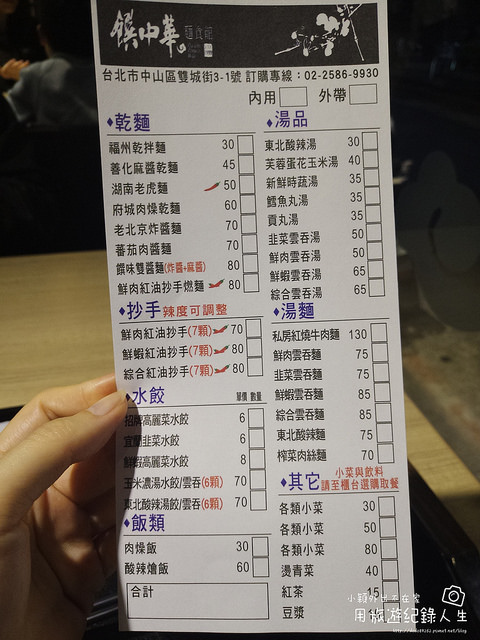 饌中華
麵食館
台北市中山區雙城街3-1號 訂購專線：02-2586-9930
內用 外帶
♦乾麵
福州乾拌麵 30
善化麻醬乾麵 45
湖南老虎麵 50
府城肉燥乾麵 60
老北京炸醬麵 70
蕃茄肉醬麵 70
饌味雙醬麵(炸醬+麻醬) 80
鮮肉紅油抄手燃麵 80
♦抄手 辣度可調整
鮮肉紅油抄手(7顆) 70
鮮蝦紅油抄手(7顆) 80
綜合紅油抄手(7顆) 80
♦水餃 單價 數量
招牌高麗菜水餃 6
宜蘭韭菜水餃 6
鮮蝦高麗菜水餃 8
玉米濃湯水餃/雲吞(6顆) 70
東北酸辣湯餃/雲吞(6顆) 70
♦飯類
肉燥飯 30
酸辣燴飯 60
合計
♦湯品
東北酸辣湯 30
芙蓉蛋花玉米湯 40
新鮮時蔬湯 35
鱈魚丸湯 35
貢丸湯 35
韭菜雲吞湯 50
鮮肉雲吞湯 50
鮮蝦雲吞湯 65
綜合雲吞湯 65
♦湯麵
私房紅燒牛肉麵 130
鮮肉雲吞麵 75
韭菜雲吞麵 75
鮮蝦雲吞麵 85
綜合雲吞麵 85
東北酸辣麵 75
榨菜肉絲麵 70
♦其它 小菜與飲料
請至櫃台選購取餐
各類小菜 30
各類小菜 50
各類小菜 80
燙青菜 40
紅茶 15
豆漿
小穎外出不在家
用旅遊紀錄人生